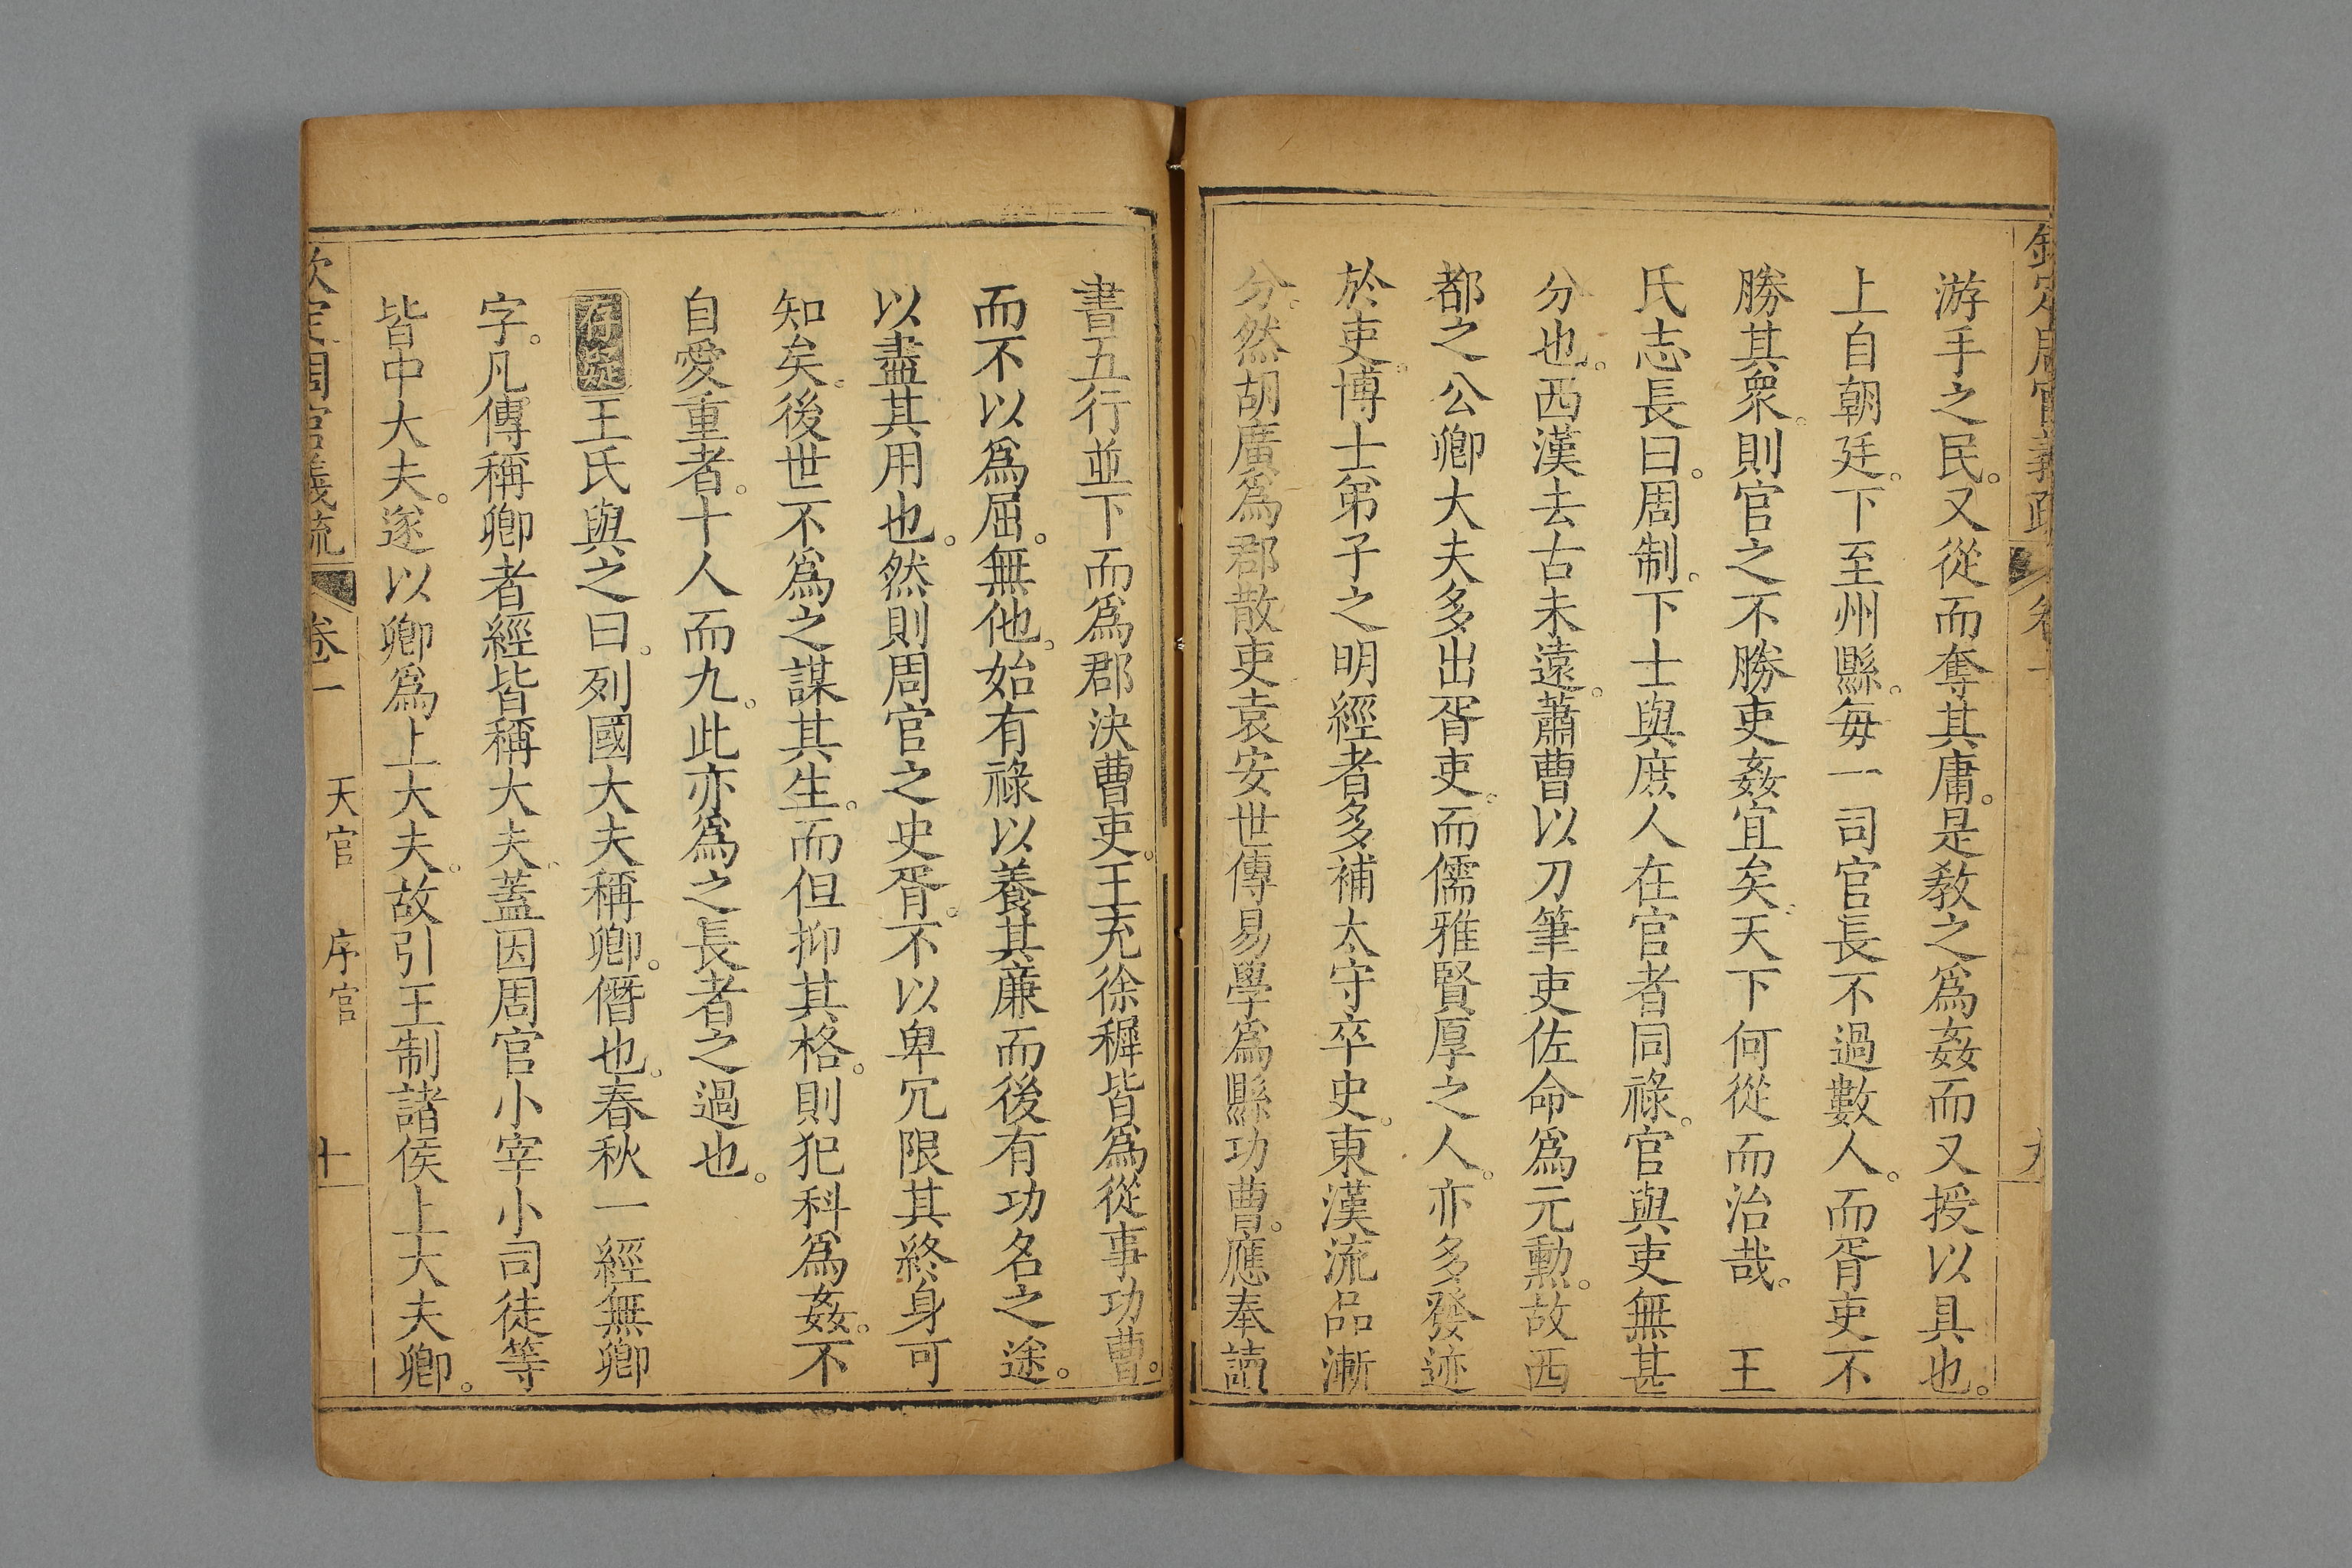 欽定周官義疏 卷一 九
游手之民。又從而奪其庸。是敎之爲姦而又授以具也。
上自朝廷。下至州縣。每一司官長不過數人。而胥吏不
勝其衆。則官之不勝吏姦宜矣。天下何從而治哉。 王
氏志長曰。周制。下士與庶人在官者同祿。官與吏無甚
分也。西漢去古未遠。蕭曹以刀筆吏佐命爲元勳。故西
都之公卿大夫多出胥吏。而儒雅賢厚之人。亦多發迹
於吏。博士弟子之明經者多補太守卒史。東漢流品漸
分。然胡廣爲郡散吏袁安世傳易學爲縣功曹。應奉讀
書五行並下而爲郡決曹吏。王充徐穉皆爲從事功曹。
而不以爲屈。無他。始有祿以養其廉而後有功名之途。
以盡其用也。然則周官之史胥。不以卑冗限其終身可
知矣。後世不爲之謀其生。而但抑其格。則犯科爲姦。不
自愛重者。十人而九。此亦爲之長者之過也。
存疑 王氏與之曰。列國大夫稱卿。僭也。春秋一經無卿
字。凡傳稱卿者經皆稱大夫。蓋因周官小宰小司徒等
皆中大夫。遂以卿爲上大夫。故引王制諸侯上大夫卿。
欽定周官義疏 卷一 天官 序官 十